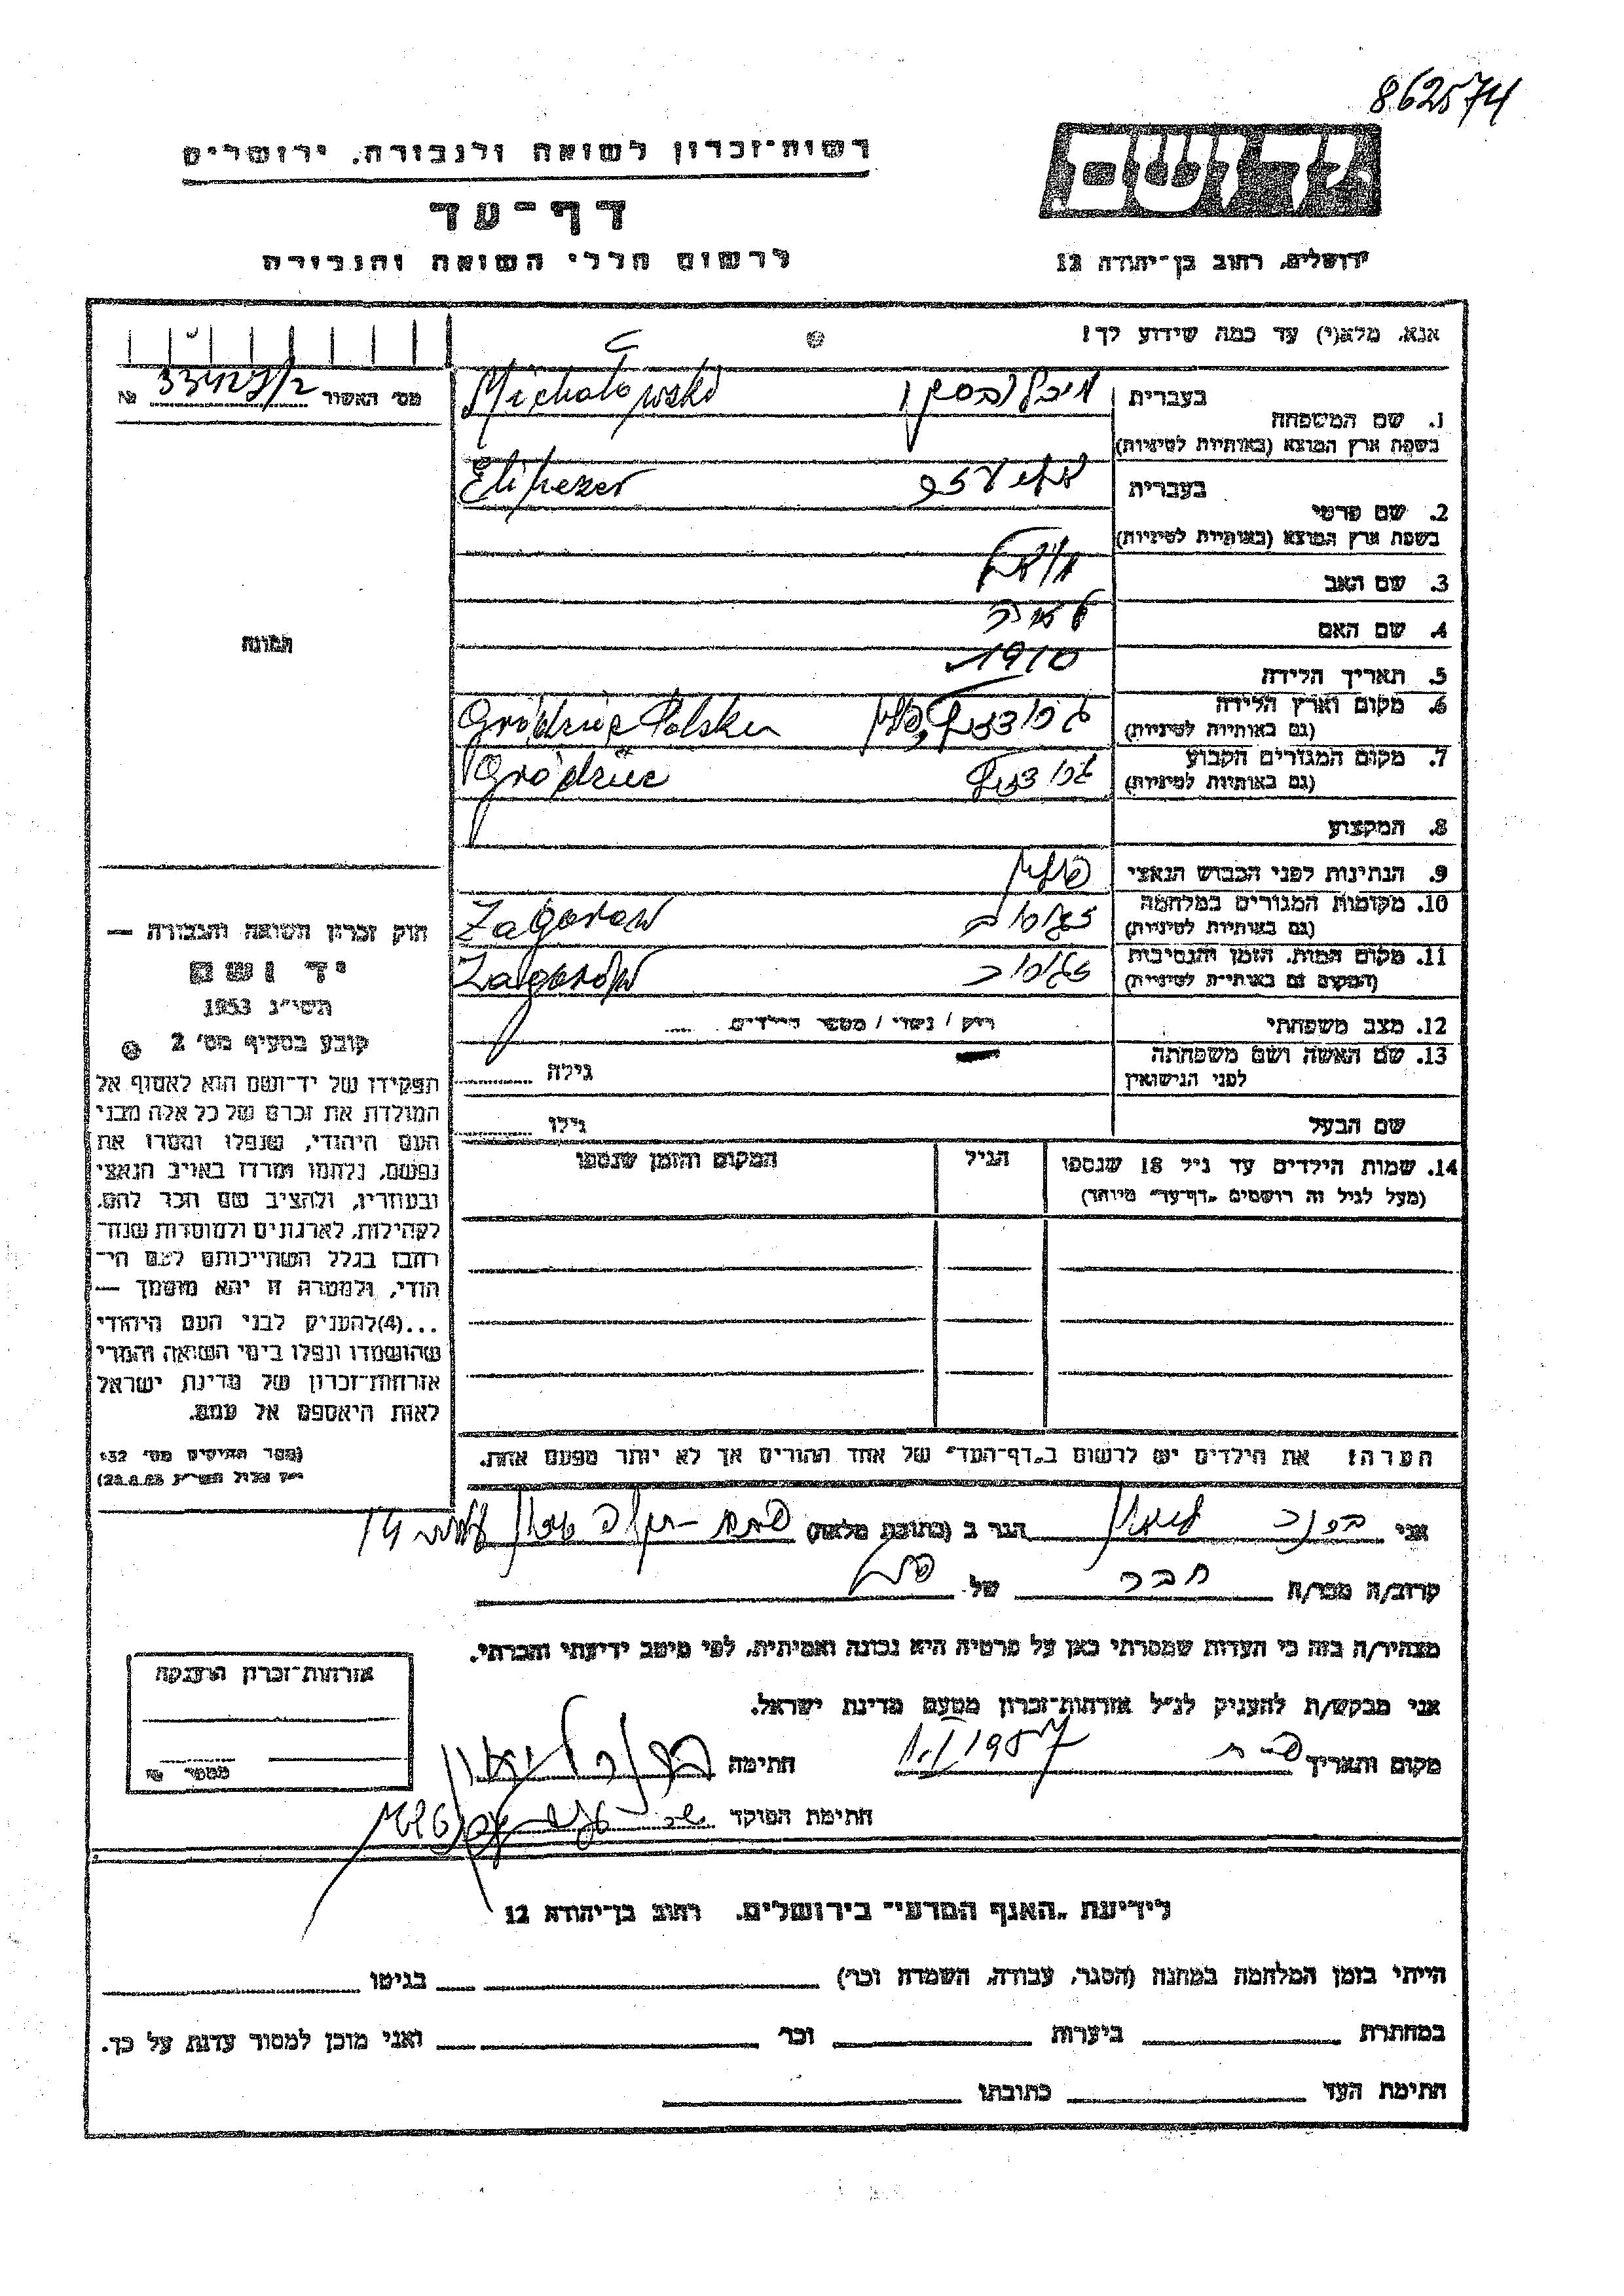 862574
רשות-זכרון לשואה ולגבורה, ירושלים
דף-עד
לרשום חללי השואה והגבורה
יד ושם
ירושלים, רחוב בן-יהודה 12
אנא, מלא(י) עד כמה שידוע לך!
מס׳ האשור 33427/2 №
1. שם המשפחה
בעברית מיכלובסקי
בשפת ארץ המוצא (באותיות לטיניות) Michałowski
2. שם פרטי
בעברית אליעזר
בשפת ארץ המוצא (באותיות לטיניות) Elihezer
3. שם האב
4. שם האם
5. תאריך הלידה 1910
6. מקום וארץ הלידה
(גם באותיות לטיניות) גרודז׳ץ, פולין Gródziec Polska
7. מקום המגורים הקבוע
(גם באותיות לטיניות) Gródziec
8. המקצוע
9. הנתינות לפני הכבוש הנאצי פולין
10. מקומות המגורים במלחמה
(גם באותיות לטיניות) זגורוב Zagorow
11. מקום המות, הזמן והנסיבות
(המקום גם באותיות לטיניות) זגורוב Zagorów
12. מצב משפחתי רווק / נשוי / מספר הילדים
13. שם האשה ושם משפחתה
לפני הנישואין גילה
שם הבעל גילו
14. שמות הילדים עד גיל 18 שנספו הגיל המקום והזמן שנספו
(מעל לגיל זה רושמים „דף-עד״ מיוחד)
הערה: את הילדים יש לרשום ב„דף-העד״ של אחד ההורים אך לא יותר מפעם אחת.
התמונה
חוק זכרון השואה והגבורה —
יד ושם
תשי״ג 1953
קובע בסעיף מס׳ 2
תפקידו של יד-ושם הוא לאסוף אל
המולדת את זכרם של כל אלה מבני
העם היהודי, שנפלו ומסרו את
נפשם, נלחמו ומרדו באויב הנאצי
ובעוזריו, ולהציב שם וזכר להם,
לקהילות, לארגונים ולמוסדות שנח-
רבו בגלל השתייכותם לעם הי-
הודי, ולמטרה זו יהא מוסמך —
...(4) להעניק לבני העם היהודי
שהושמדו ונפלו בימי השואה והמרי
אזרחות-זכרון של מדינת ישראל
לאות היאספם אל עמם.
(ספר החוקים מס׳ 132
אני הגר ב (כתובת מלאה) 14
קרוב/ה מכר/ה חבר של
מצהיר/ה בזה כי העדות שמסרתי כאן על פרטיה היא נכונה ואמיתית, לפי מיטב ידיעתי והכרתי.
אני מבקש/ת להעניק לנ״ל אזרחות-זכרון מטעם מדינת ישראל.
מקום ותאריך 1957 חתימה
חתימת הפוקד
אזרחות-זכרון הוענקה
מספר №
לידיעת „האגף המדעי״ בירושלים, רחוב בן-יהודה 12
הייתי בזמן המלחמה במחנה (הסגר, עבודה, השמדה וכו׳) בגיטו
במחתרת ביערות וכו׳ ואני מוכן למסור עדות על כך.
חתימת העד כתובתו